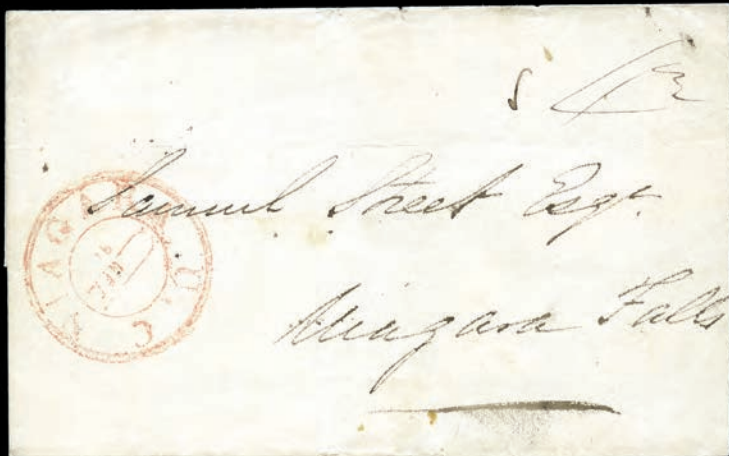 Samuel Street Esqr.
Niagara Falls
NIAGARA. U. C